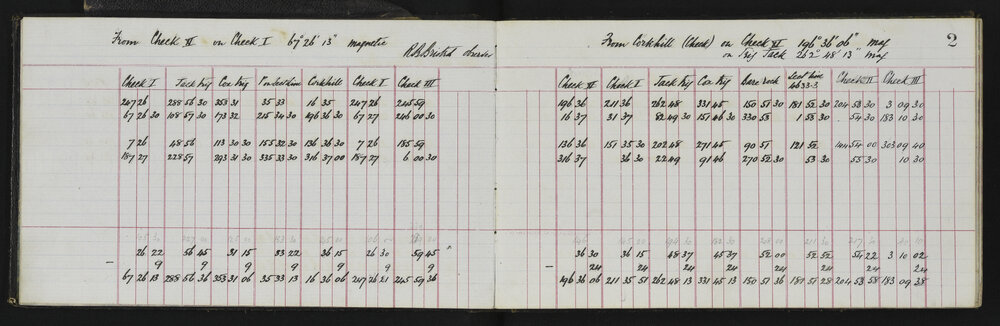 From Check VI on Check I 67° 26' 13" magnetic
observer
Check I Jack Trig Cox Trig Corkhill Check I Check III
247 26 288 56 30 353 31 35 33 16 35 247 26 245 59
67 26 30 108 57 30 173 32 215 34 30 196 36 30 67 27 246 00 30
7 26 48 56 113 30 30 155 32 30 136 36 30 7 26 185 59
187 27 228 57 293 31 30 335 33 30 316 37 00 187 27 6 00 30
26 22 56 45 31 15 33 22 36 15 26 30 59 45 "
9 9 9 9 9 9 9
67 26 13 288 56 36 353 31 06 35 33 13 16 36 06 247 26 21 245 59 36
2
From Corkhill (Check) on Check VI 196° 36' 06" mag
on Trig Jack 262° 48' 13" mag
Check VI Check I Jack Trig Cox Trig Bare rock Check II Check III
196 36 211 36 262 48 331 45 150 51 30 181 52 30 204 53 30 3 09 30
16 37 31 37 82 49 30 151 46 30 330 53 1 53 30 54 30 183 10 30
136 36 151 35 30 202 48 271 45 90 51 121 52 144 54 00 303 09 40
316 37 36 30 22 49 91 46 270 52 30 53 30 55 30 10 30
36 30 36 15 48 37 45 37 52 00 52 52 54 22 3 10 02
– 24 24 24 24 24 24 24 24
196 36 06 211 35 51 262 48 13 331 45 13 150 51 36 181 51 28 204 53 58 183 09 38